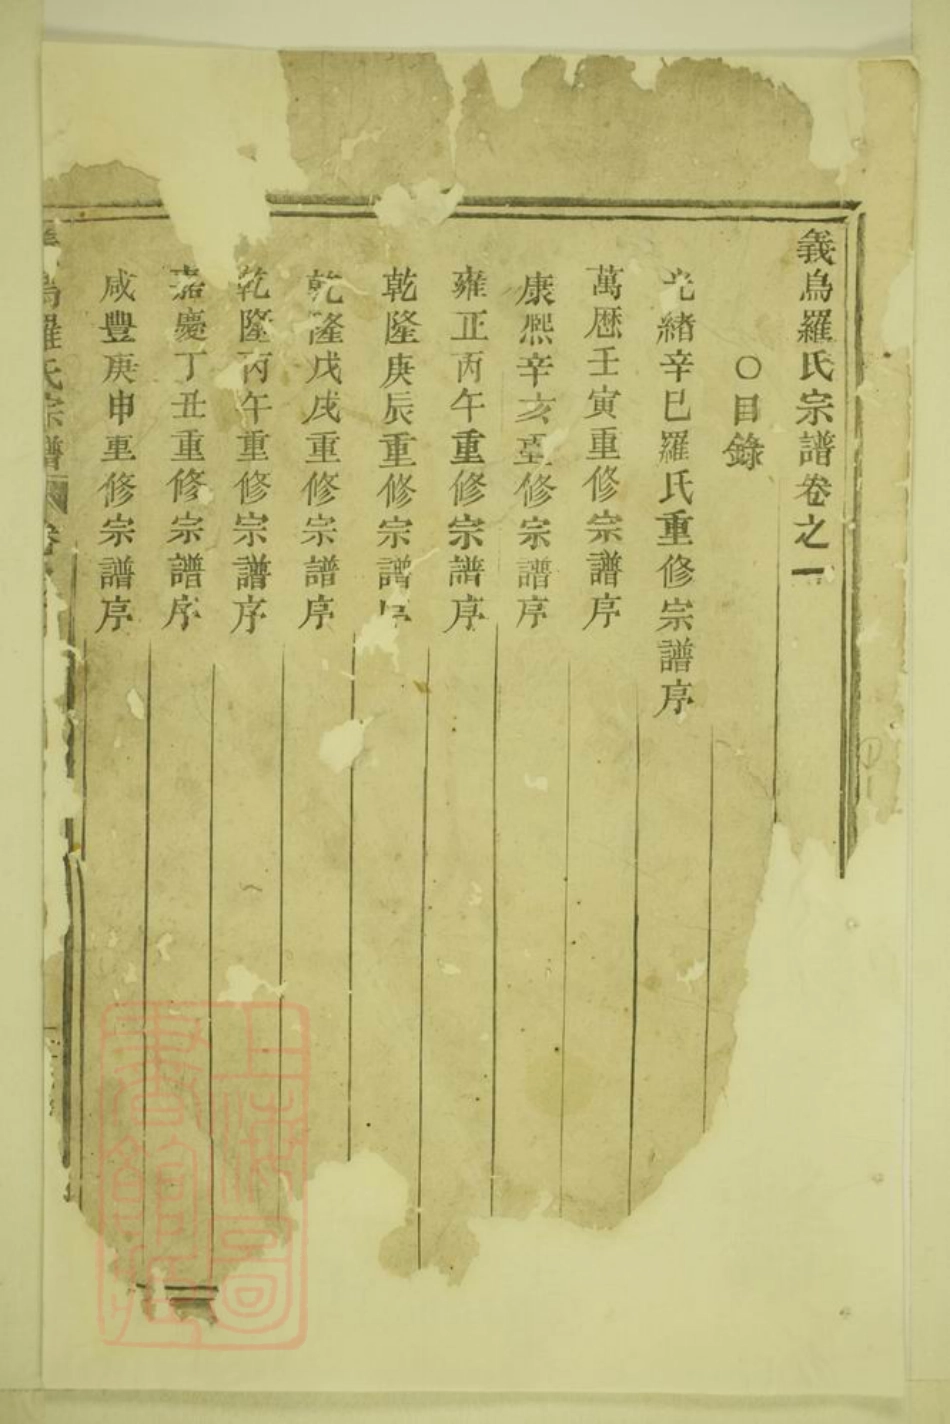 義烏羅氏宗譜卷之一
○目錄
光緒辛巳羅氏重修宗譜序
萬歷壬寅重修宗譜序
康熙辛亥重修宗譜序
雍正丙午重修宗譜序
乾隆庚辰重修宗譜序
乾隆戊戌重修宗譜序
乾隆丙午重修宗譜序
嘉慶丁丑重修宗譜序
咸豐庚申重修宗譜序
烏羅氏宗譜 卷
上海圖書館藏